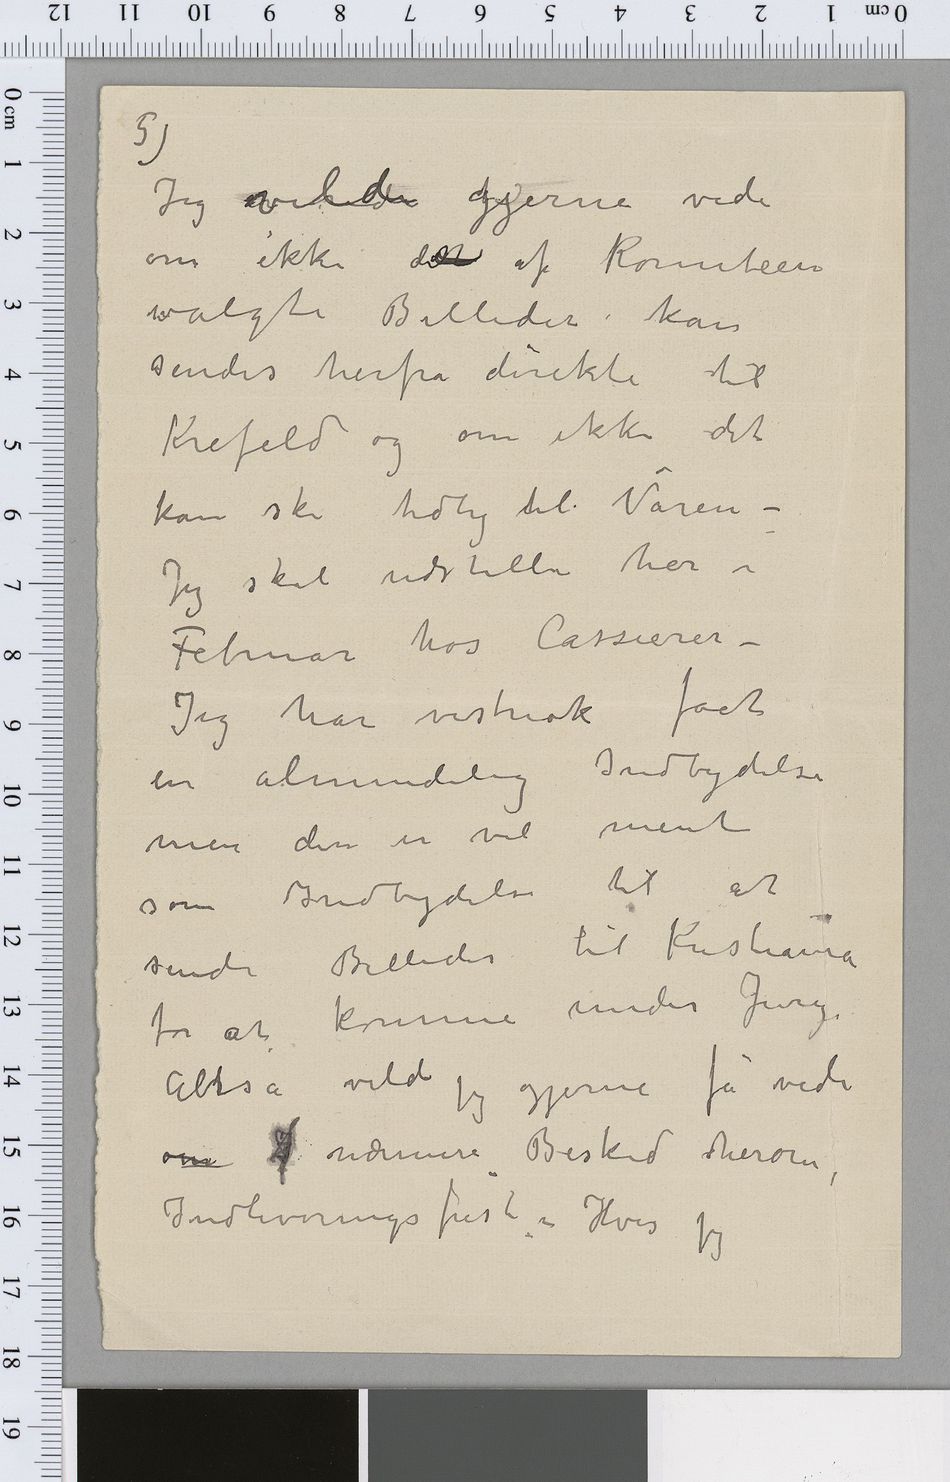 5)
Jeg vilde gjerne vide
om ikke det af Komiteen
valgte Billeder kan
sendes herfra direkte til
Krefeld og om ikke det
kan ske tidlig til Våren –
Jeg skal udstille her i
Februar hos Cassierer –
Jeg har vistnok faet
en almindelig Indbydelse
men den er vel ment
som Indbydelse til at
sende Billeder til Kristiania
for at komme under Jury.
Altså vild jeg gjerne få vide
om nærmere Besked herom,
Indleveringsfrist – Hvis jeg